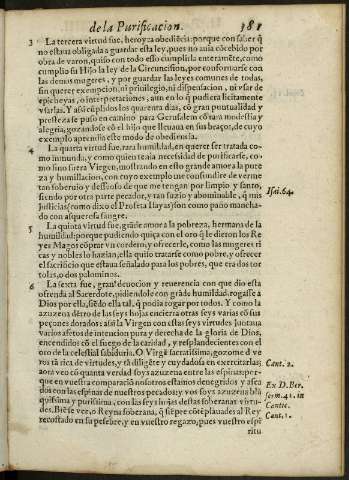 de la Purificacion. 381
3 La tercera virtud fue, heroyca obediẽcia: porque con saber q̃
no estaua obligada a guardar esta ley, pues no auia cõcebido por
obra de varon, quiso con todo esso cumplirla enteramẽte, como
cumplio su Hijo la ley de la Circuncision, por conformarse con
las demas mugeres, y por guardar las leyes comunes de todas,
sin querer exempcion, ni priuilegio, ni dispensacion, ni vsar de
epicheyas, o interpretaciones, aun en lo q̃ pudiera licitamente
vsarlas. Y assi cũplidos los quarenta dias, cõ gran puntualidad y
presteza se puso en camino para Gerusalem cõ rara modestia y
alegria, gozandose cõ el hijo que lleuaua en sus braços, de cuyo
exemplo aprendio este modo de obediencia.
4 La quarta virtud fue, rara humildad, en querer ser tratada co-
mo inmunda, y como quien tenia necesidad de purificarse, co-
mo sino fuera Virgen, mostrando en esto grande amora la pure
za y humillacion, con cuyo exemplo me confundire de verme
tan soberuio y desseoso de que me tengan por limpio y santo,
siendo por otra parte pecador, y tan suzio y abominable, q̃ mis
justicias (como dixo el Profeta Isayas) son como paño mancha-
do con asquerosa sangre.
Isai. 64.
5 La quinta virtud fue, grãde amor a la pobreza, hermana de la
humildad: porque pudiendo quiça con el oro que le dieron los Re
yes Magos cõprar vn cordero, y ofrecerle, como las mugeres ri
cas y nobles lo hazian, ella quiso tratarse como pobre, y ofrecer
el sacrificio que estaua señalado para los pobres, que era dos tor
tolas, o dos palominos.
6 La sexta fue, gran deuocion y reuerencia con que dio esta
ofrenda al Sacerdote, pidiendole con grãde humildad, rogasse a
Dios por ella, siẽdo ella tal, q̃ podia rogar por todos. Y como la
azuzena dẽtro de las seys hojas encierra otras seys varias cõ sus
peçones dorados: assi la Virgen con estas seys virtudes juntaua
varios afetos de intencion pura y derecha de la gloria de Dios,
encendidos cõ el fuego de la caridad, y resplandecientes con el
oro de la celestial sabiduria. O Virgẽ sacratissima, gozome d ve
ros tã rica de virtudes, y tã diligẽte y cuydadosa en exercitarlas;
aora veo cõ quanta verdad soys azuzena entre las espinas: por-
que en vuestra comparaciõ nosotros estamos denegridos y asea
dos con las espinas de nuestros pecados: y vos soys azuzena blã
quissima y purissima, con las seys hojas destas soberanas virtu-
des. Biẽ se ve, o Reyna soberana, q̃ siẽpre cõtẽplauades al Rey
recostado en su pesebre, y en vuestro regazo, pues vuestro espi
Cant. 2.
Ex D. Ber.
serm. 41. in
Cantic.
Cant. 1.
ritu